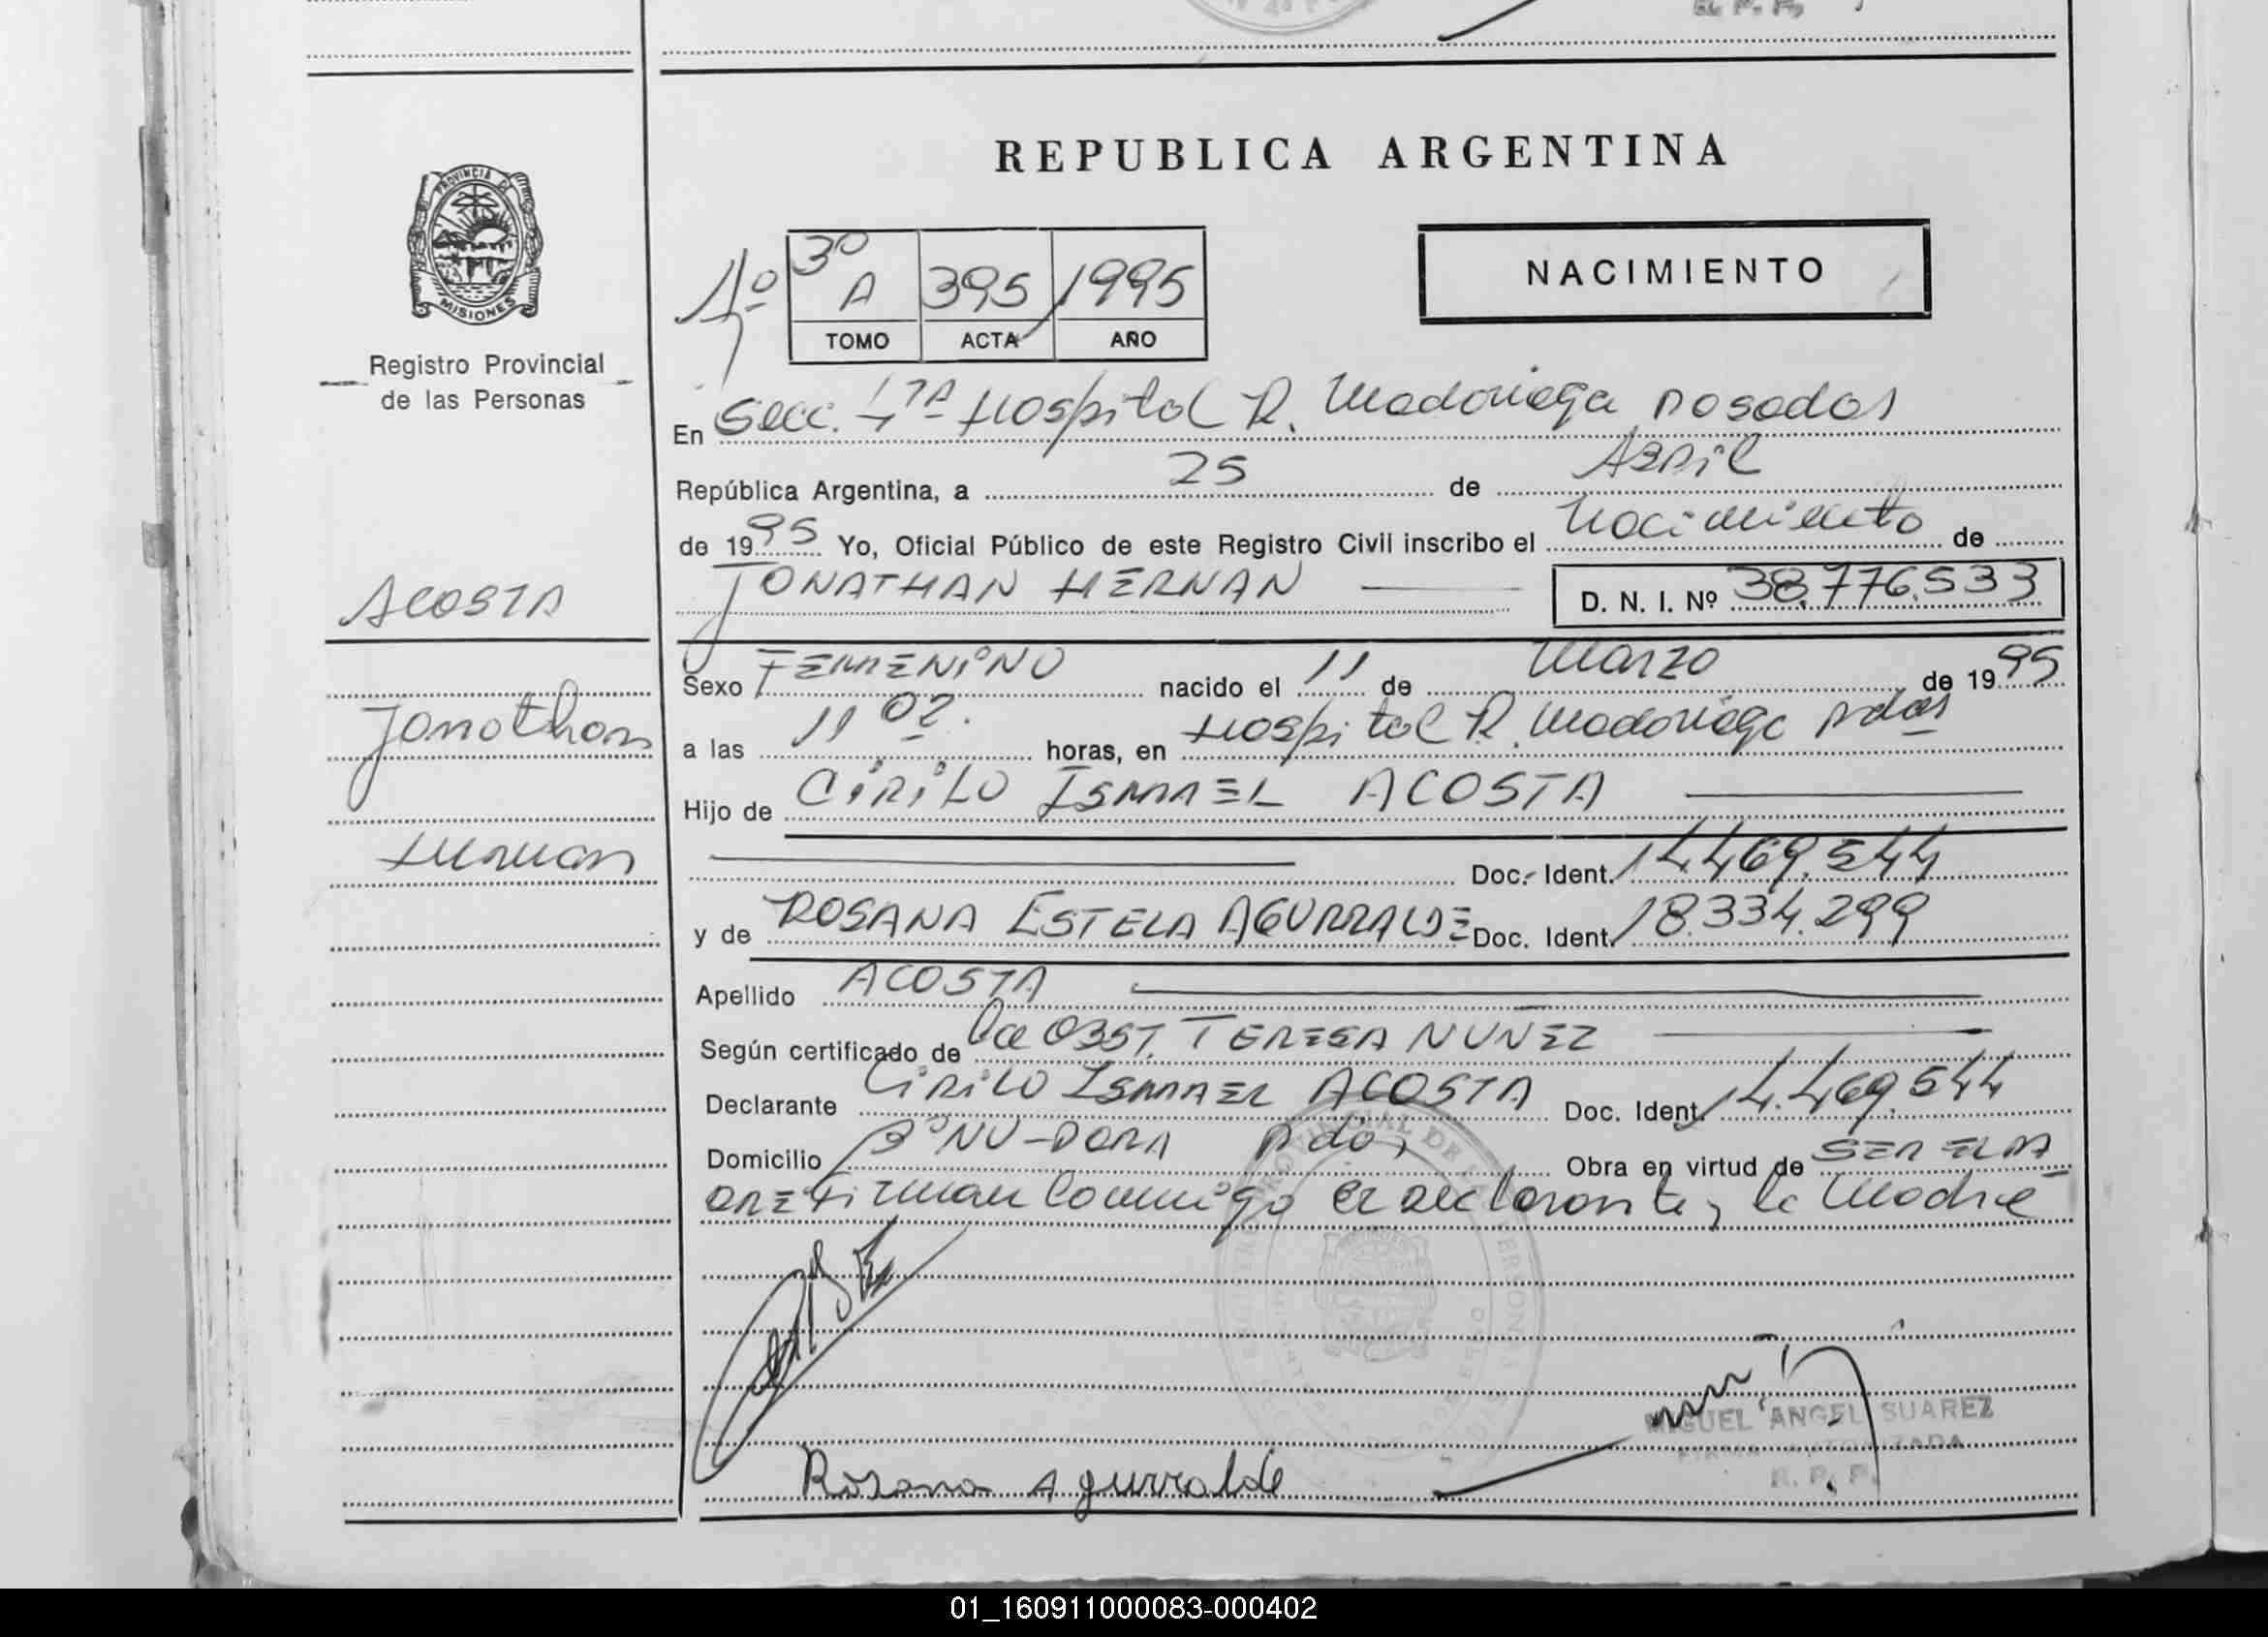 REPUBLICA ARGENTINA
PROVINCIA DE
MISIONES
Registro Provincial
de las Personas
3º
A 395 1995
TOMO ACTA AÑO
NACIMIENTO
En Secc. 4TA Hospital R. Madariaga Posadas
República Argentina, a 25 de ABRIL
de 1995 Yo, Oficial Público de este Registro Civil inscribo el Nacimiento de
JONATHAN HERNAN D. N. I. Nº 38.776.533
ACOSTA
Jonathan
Hernan
Sexo FEMENINO nacido el 11 de Marzo de 1995
a las 11 02. horas, en Hospital R. Madariaga Pdas
Hijo de CIRILO ISMAEL ACOSTA
Doc. Ident. 14.469.544
y de ROSANA ESTELA AGURRALDE Doc. Ident. 18.334.299
Apellido ACOSTA
Según certificado de la OBST. TERESA NUNEZ
Declarante CIRILO ISMAEL ACOSTA Doc. Ident. 14.469.544
Domicilio Pdas Obra en virtud de SER EL PA
DRE Firman conmigo el declarante y la Madre
Rosana Agurralde
MIGUEL ANGEL SUAREZ
FIRMA AUTORIZADA
R. P. P.
01_160911000083-000402